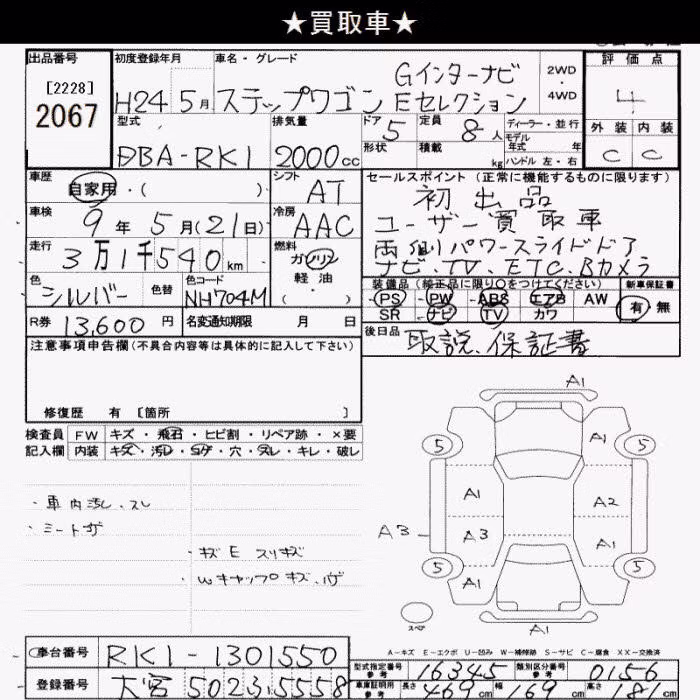 ★買取車★
出品番号
[2228]
2067
初度登録年月
H24 5月
車名・グレード
ステップワゴン Gインターナビ Eセレクション
2WD・4WD
評価点
4
外装 内装
C C
型式
DBA-RK1
排気量
2000cc
ドア 5
形状
定員 8人
積載 kg
ディーラー・並行
モデル年式 年
ハンドル 左・右
車歴
自家用・( )
シフト
AT
車検
9年5月(21日)
冷房
AAC
走行
3万1千540km
燃料
ガソリン
軽油
( )
色
シルバー
色替
色コード
NH704M
R券 13,600円
名変通知期限 月 日
セールスポイント (正常に機能するものに限ります)
初出品
ユーザー買取車
両側パワースライドドア
ナビ、TV、ETC、Bカメラ
装備品(純正品に限り○をつけてください)
PS・PW・ABS エアB AW
SR ナビ TV カワ
新車保証書
有・無
後日品
取説、保証書
注意事項申告欄(不具合内容等は具体的に記入して下さい)
修復歴 有 [箇所 ]
検査員記入欄
FW キズ・飛石・ヒビ割・リペア跡・×要
内装 キズ・汚レ・コゲ・穴・スレ・キレ・破レ
・車内汚レ、スレ
・シートサゲ
・キズE スリキズ
・Wキャップキズ、ハゲ
A1
A1
5 5
A1 A2
A3 A3 A1
5 5
A1 A1
スペア
A1
A-キズ E-エクボ U-凹み W-補修跡 S-サビ C-腐食 XX-交換済
車台番号 RK1-1301550
登録番号 大宮502さ5558
型式指定番号 参考 16345
類別区分番号 参考 0156
車庫証明用 参考 長さ 469cm 幅 169cm 高さ 181cm